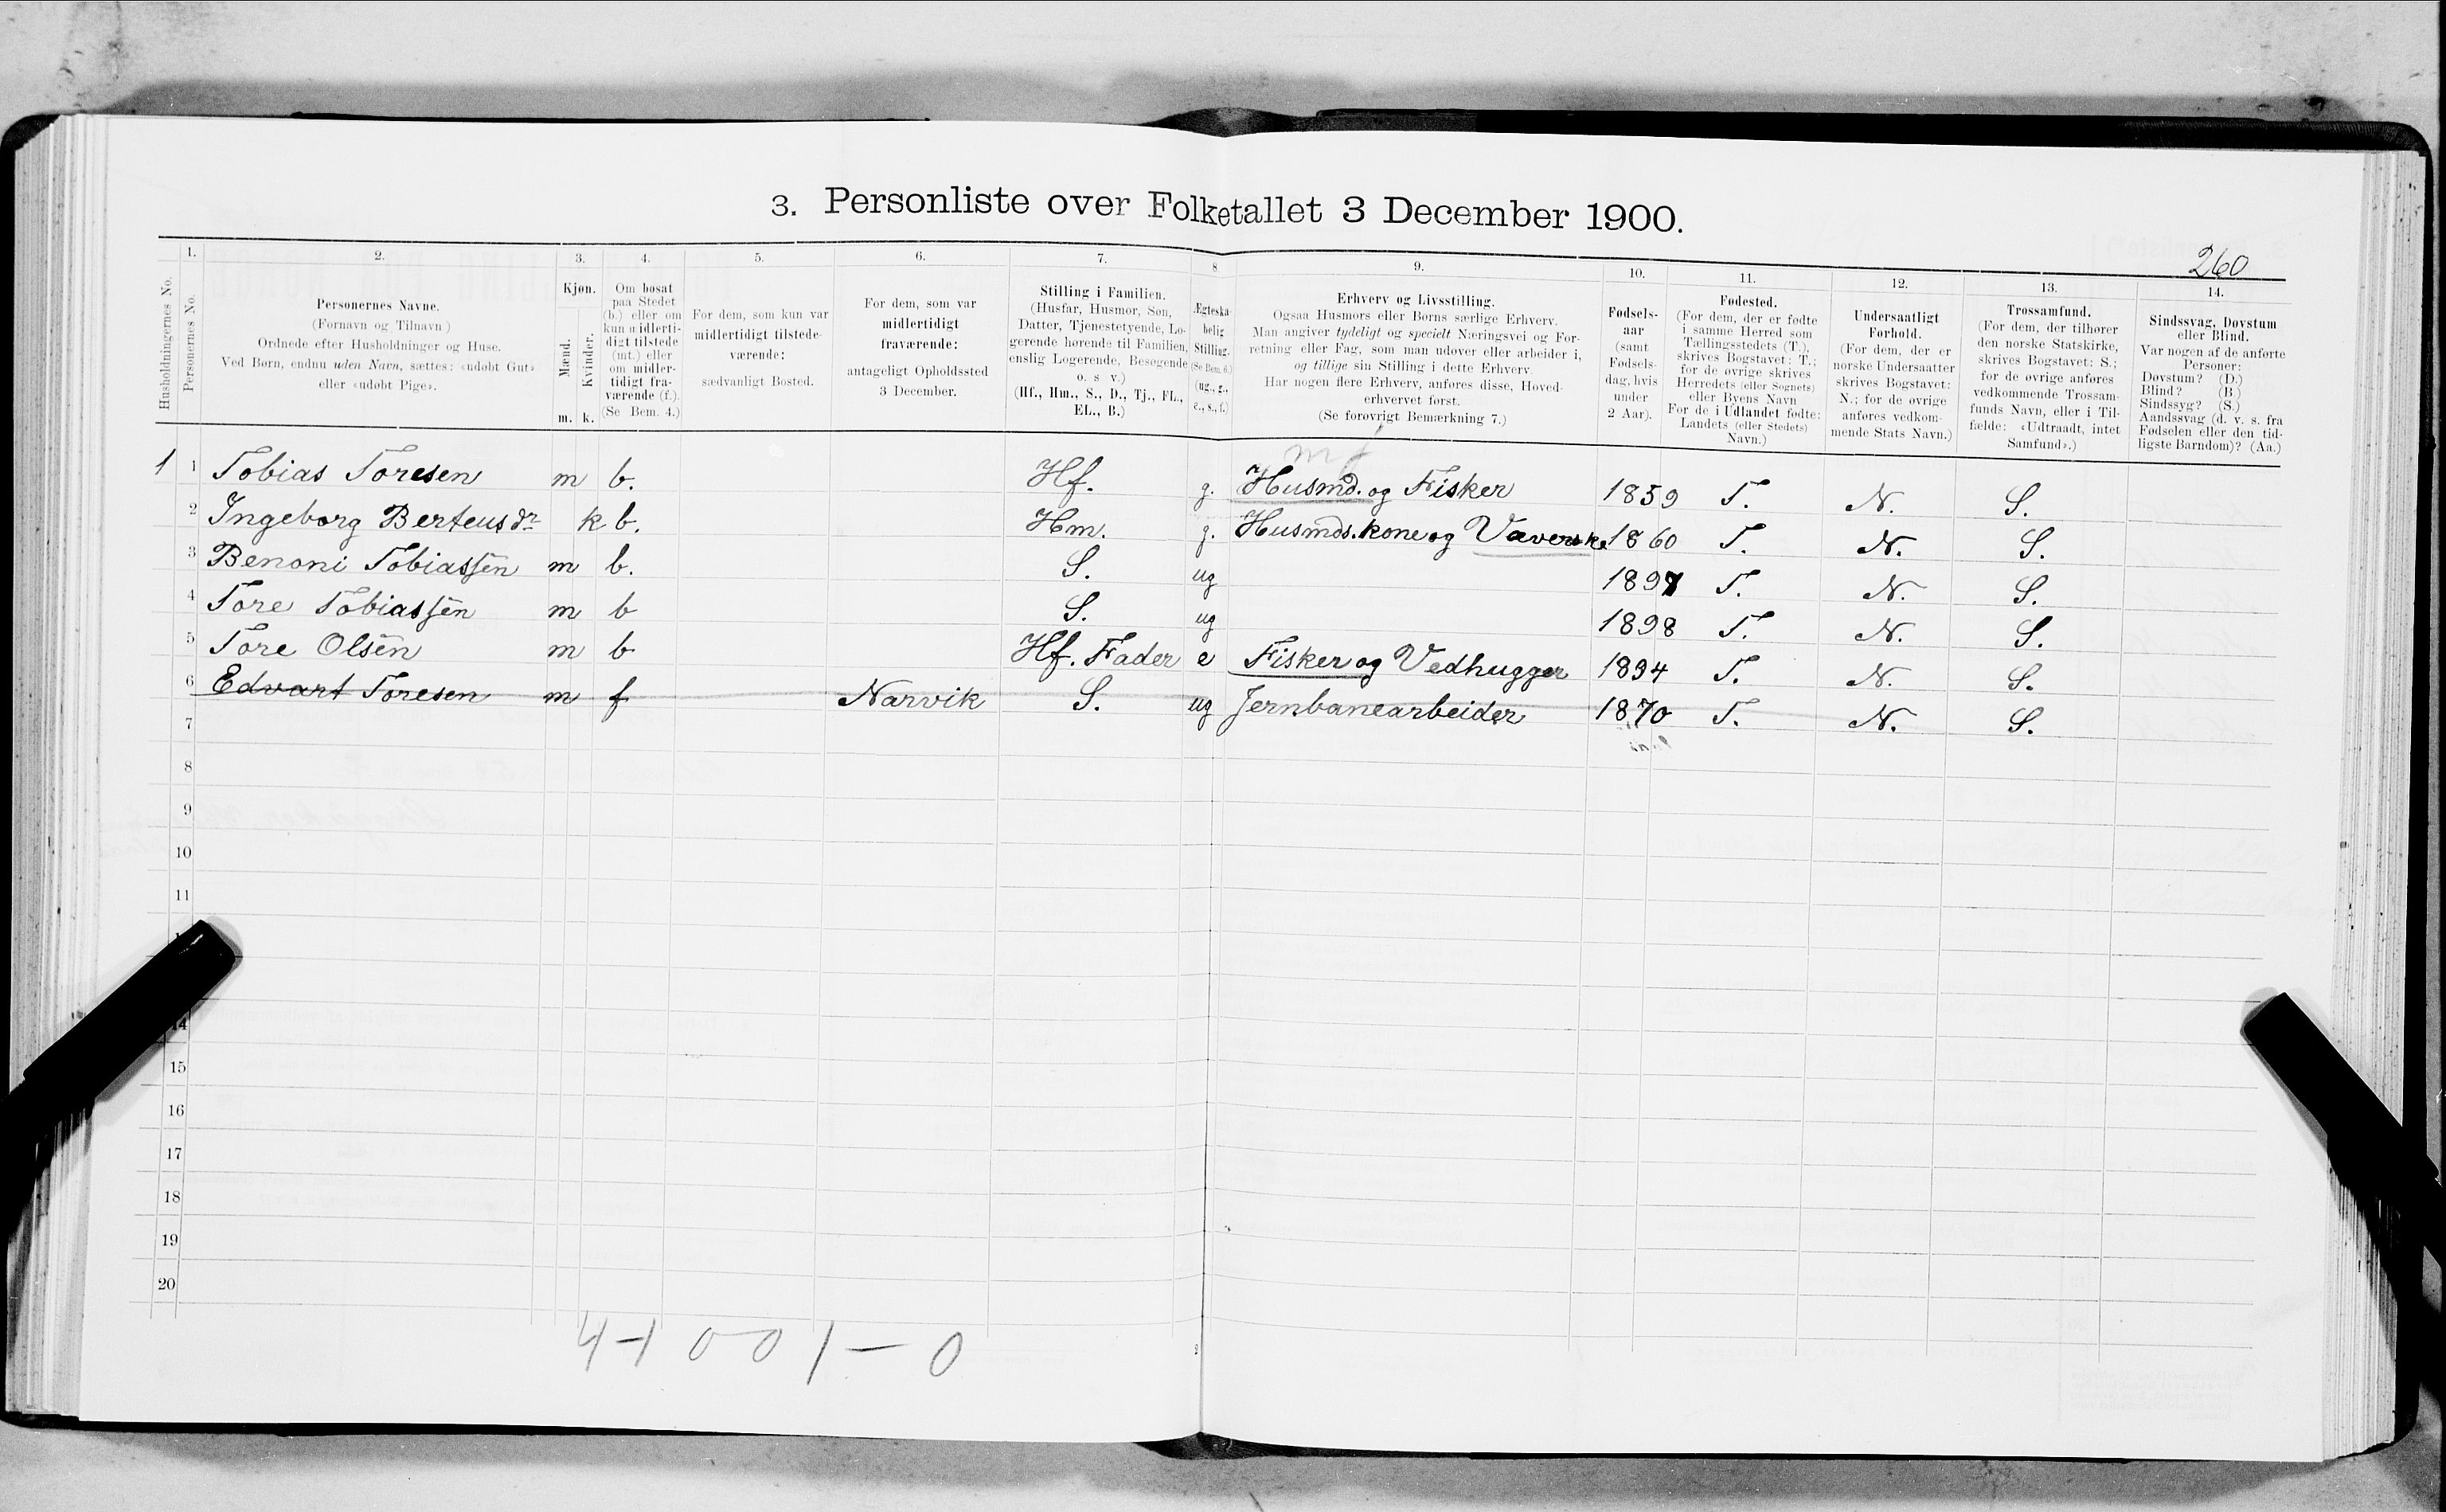 3. Personliste over Folketallet 3 December 1900.
260
Husholdningernes No.
1.
Personernes No.
2.
Personernes Navne.
(Fornavn og Tilnavn)
Ordnede efter Husholdninger og Huse.
Ved Børn, endnu uden Navn, sættes: «udøbt Gut»
eller «udøbt Pige».
3.
Kjøn.
Mænd.
Kvinder.
m. k.
4.
Om bosat
paa Stedet
(b.) eller om
kun midlerti-
digt tilstede
(mt.) eller
om midler-
tidigt fra-
værende (f.).
(Se Bem. 4.)
5.
For dem, som kun var
midlertidigt tilstede-
værende:
sædvanligt Bosted.
6.
For dem, som var
midlertidigt
fraværende:
antageligt Opholdssted
3 December.
7.
Stilling i Familien.
(Husfar, Husmor, Søn,
Datter, Tjenestetyende, Lo-
gerende hørende til Familien,
enslig Logerende, Besøgende
o. s v.)
(Hf., Hm., S., D., Tj., FL.,
EL., B.)
8
Ægteska-
belig
Stilling.
(Se Bem. 6.)
(ug., g.,
e., s., f.)
9.
Erhverv og Livsstilling.
Ogsaa Husmors eller Børns særlige Erhverv.
Man angiver tydeligt og specielt Næringsvei og For-
retning eller Fag, som man udøver eller arbeider i,
og tillige sin Stilling i dette Erhverv.
Har nogen flere Erhverv, anføres disse, Hoved-
erhvervet først.
(Se forøvrigt Bemærkning 7.)
10.
Fødsels-
aar
(samt
Fødsels-
dag, hvis
under
2 Aar).
11.
Fødested.
(For dem, der er fødte
i samme Herred som
Tællingsstedets (T.),
skrives Bogstavet: T.;
for de øvrige skrives
Herredets (eller Sognets)
eller Byens Navn
For de i Udlandet fødte:
Landets (eller Stedets)
Navn.)
12.
Undersaatligt
Forhold.
(For dem, der er
norske Undersaatter
skrives Bogstavet:
N.; for de øvrige
anføres vedkom-
mende Stats Navn.)
13.
Trossamfund.
(For dem, der tilhører
den norske Statskirke,
skrives Bogstavet: S.;
for de øvrige anføres
vedkommende Trossam-
funds Navn, eller i Til-
fælde: «Udtraadt, intet
Samfund».)
14.
Sindssvag, Døvstum
eller Blind.
Var nogen af de anførte
Personer:
Døvstum? (D.)
Blind? (B.)
Sindssyg? (S.)
Aandssvag (d. v. s. fra
Fødselen eller den tid-
ligste Barndom)? (Aa.)
1 1 Tobias Toresen m b. Hf. g. Husmd. og Fisker 1859 T. N. S.
2 Ingeborg Berteusdr k b. Hm. g. Husmds. kone og Væverske 1860 T. N. S.
3 Benoni Tobiassen m b. S. ug 1897 T. N. S.
4 Tore Tobiassen m b S. ug 1898 T. N. S.
5 Tore Olsen m b Hf. Fader e Fisker og Vedhugger 1834 T. N. S.
6 Edvart Toresen m f Narvik S. ug Jernbanearbeider 1870 T. N. S.
7
8
9
10
11
14
15
16
17
18
19
20
4-1 0 0 1 - 0